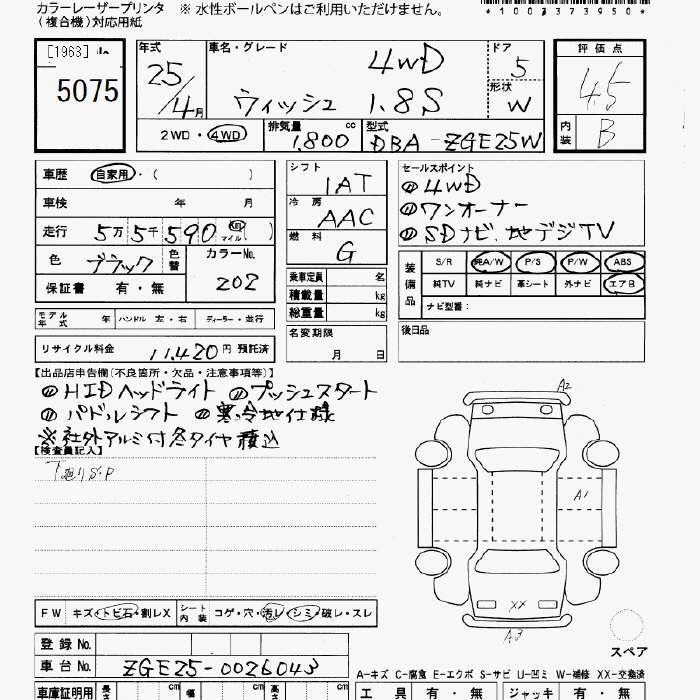 カラーレーザープリンタ
(複合機)対応用紙
※ 水性ボールペンはご利用いただけません。
*1003373950*
[1963]
5075
年式
25/4月
車名・グレード
4WD
ウィッシュ 1.8S
ドア
5
形状
W
評価点
4.5
内装
B
2WD・4WD
排気量 cc
1,800
型式
DBA-ZGE25W
車歴 自家用・( )
車検 年 月
走行 5万5千590 Km マイル ( )
色 ブラック 色替
カラーNo.
202
保証書 有・無
モデル年式 年 ハンドル 左・右 ディーラー・並行
リサイクル料金 11,420円 預託済
シフト
1AT
冷房
AAC
燃料
G
乗車定員 名
積載量 kg
総重量 kg
名変期限
月 日
セールスポイント
◎4WD
◎ワンオーナー
◎SDナビ、地デジTV
装備品
S/R 純A/W P/S P/W ABS
純TV 純ナビ 革シート 外ナビ エアB
ナビ型番:
後日品
【出品店申告欄(不良箇所・欠品・注意事項等)】
◎HIDヘッドライト ◎プッシュスタート
◎パドルシフト ◎寒冷地仕様
※社外アルミ付冬タイヤ積込
【検査員記入】
下廻りS・P
A2
A1
XX
A3
スペア
FW キズ・トビ石・割レX
シート内装 コゲ・穴・汚レ・シミ・破レ・スレ
登録No.
車台No. ZGE25-0026043
A-キズ C-腐食 E-エクボ S-サビ U-凹ミ W-補修 XX-交換済
車庫証明用 長さ cm 幅 cm 高さ cm
工具 有・無 ジャッキ 有・無